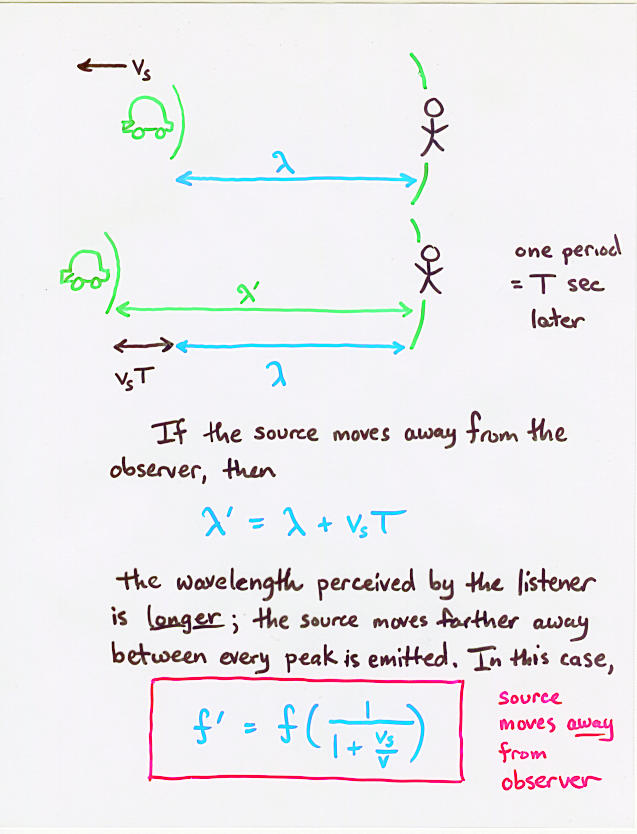 ← vₛ
λ
λ'
one period
= T sec
later
vₛT
λ
If the source moves away from the
observer, then
λ' = λ + vₛT
the wavelength perceived by the listener
is longer; the source moves farther away
between every peak is emitted. In this case,
f' = f(1/(1 + vₛ/v))
source
moves away
from
observer